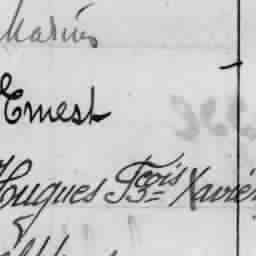 Marius
Ernest
Hugues Fcois Xavier